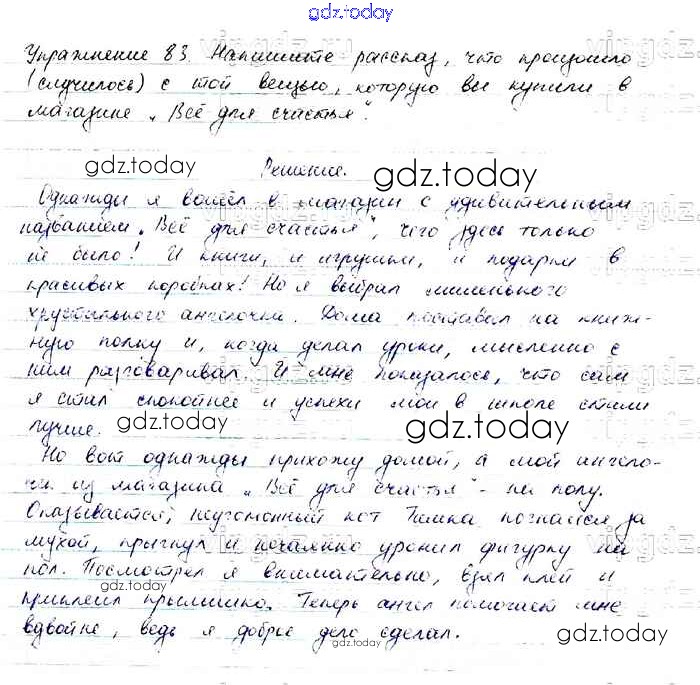 gdz.today
Упражнение 83. Напишите рассказ, что произошло
(случилось) с той вещью, которую вы купили в
магазине „Всё для счастья".
gdz.today
Решение.
gdz.today
Однажды я вошёл в магазин с удивительным
названием „Всё для счастья", чего здесь только
не было! И книги, и игрушки, и подарки в
красивых коробках! Но я выбрал миленького
хрустального ангелочка. Дома поставил на книж-
ную полку и, когда делал уроки, мысленно с
ним разговаривал. И мне показалось, что сам
я стал спокойнее и успехи мои в школе стали
лучше.
gdz.today
gdz.today
Но вот однажды прихожу домой, а мой ангело-
чек из магазина „Всё для счастья" - на полу.
Оказывается, неугомонный кот Тимка погнался за
мухой, прыгнул и нечаянно уронил фигурку на
пол. Посмотрел я внимательно, взял клей и
gdz.today
приклеил крылышко. Теперь ангел помогает мне
вдвойне, ведь я доброе дело сделал.
gdz.today
gdz.today